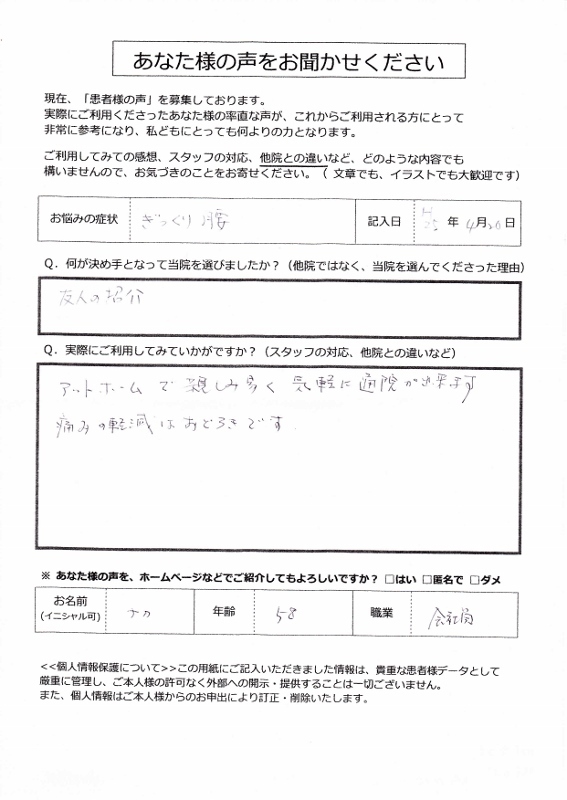 あなた様の声をお聞かせください
現在、「患者様の声」を募集しております。
実際にご利用くださったあなた様の率直な声が、これからご利用される方にとって
非常に参考になり、私どもにとっても何よりの力となります。
ご利用してみての感想、スタッフの対応、他院との違いなど、どのような内容でも
構いませんので、お気づきのことをお寄せください。（ 文章でも、イラストでも大歓迎です）
お悩みの症状 ぎっくり腰 記入日 H25 年 4月20日
Q. 何が決め手となって当院を選びましたか？（他院ではなく、当院を選んでくださった理由）
友人の紹介
Q. 実際にご利用してみていかがですか？（スタッフの対応、他院との違いなど）
アットホームで 親しみ易く 気軽に 通院が出来ます
痛みの軽減はおどろきです.
※ あなた様の声を、ホームページなどでご紹介してもよろしいですか？ □はい □匿名で □ダメ
お名前 年齢 58 職業 会社員
(イニシャル可)
<<個人情報保護について>>この用紙にご記入いただきました情報は、貴重な患者様データとして
厳重に管理し、ご本人様の許可なく外部への開示・提供することは一切ございません。
また、個人情報はご本人様からのお申出により訂正・削除いたします。